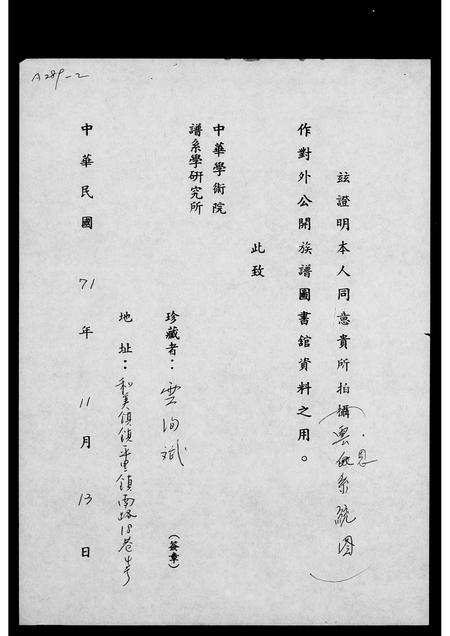 A289-2
茲證明本人同意貴所拍攝(雲 恩系統圖)
作對外公開族譜圖書館資料之用。
此致
中華學術院
譜系學研究所
珍藏者:雲 斌 (簽章)
地址:和美鎮鎮平里鎮南路18巷 号
中華民國71年11月13日